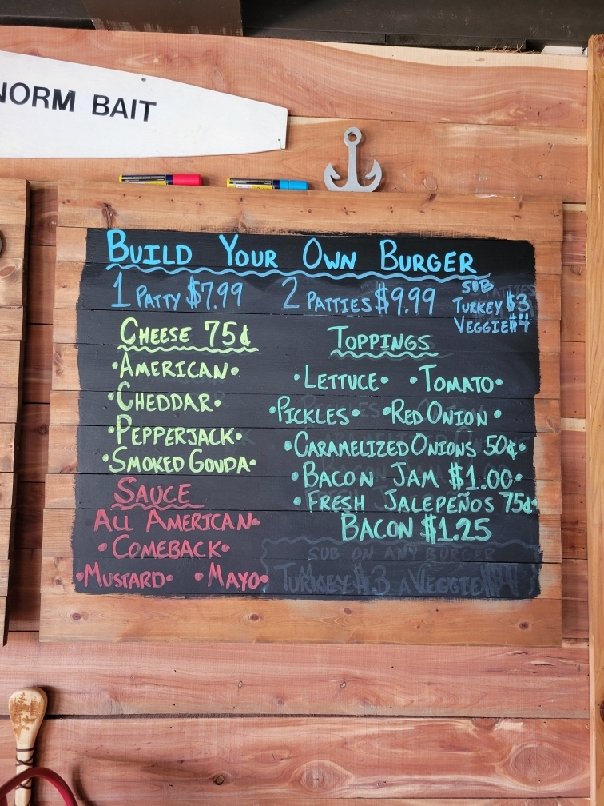 NORM BAIT
BUILD YOUR OWN BURGER
1 PATTY $7.99 2 PATTIES $9.99
SUB
TURKEY $3
VEGGIE $4
CHEESE 75¢
•AMERICAN•
•CHEDDAR•
•PEPPERJACK•
•SMOKED GOUDA•
SAUCE
ALL AMERICAN•
•COMEBACK•
•MUSTARD• •MAYO•
TOPPINGS
•LETTUCE• •TOMATO•
•PICKLES• •RED ONION•
•CARAMELIZED ONIONS 50¢•
•BACON JAM $1.00•
•FRESH JALEPEÑOS 75¢•
BACON $1.25
SUB ON ANY BURGER
TURKEY $3 VEGGIE $4